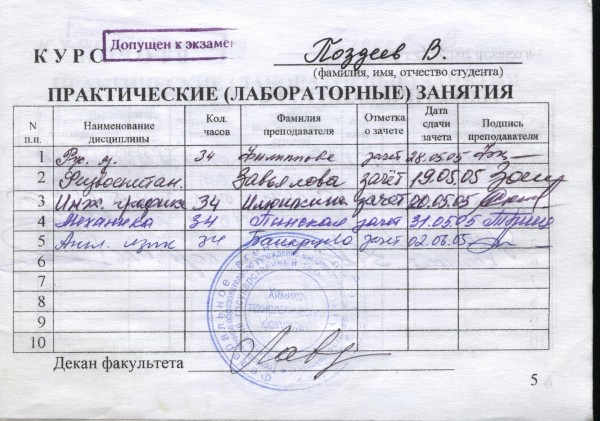 Допущен к экзамен
КУРС Поздеев В.
(фамилия, имя, отчество студента)
ПРАКТИЧЕСКИЕ (ЛАБОРАТОРНЫЕ) ЗАНЯТИЯ
N п.п. Наименование дисциплины Кол. часов Фамилия преподавателя Отметка о зачете Дата сдачи зачета Подпись преподавателя
1 34 Филиппова зачет 28.05.05
2 Физвоспитан. Завьялова зачёт 19.05.05
3 Инж. графика 34 зачёт 20.05.05
4 Механика 34 Пинская зачет 31.05.05
5 Англ. язык 34 зачет 02.06.05
6
7
8
9
10
Декан факультета
5